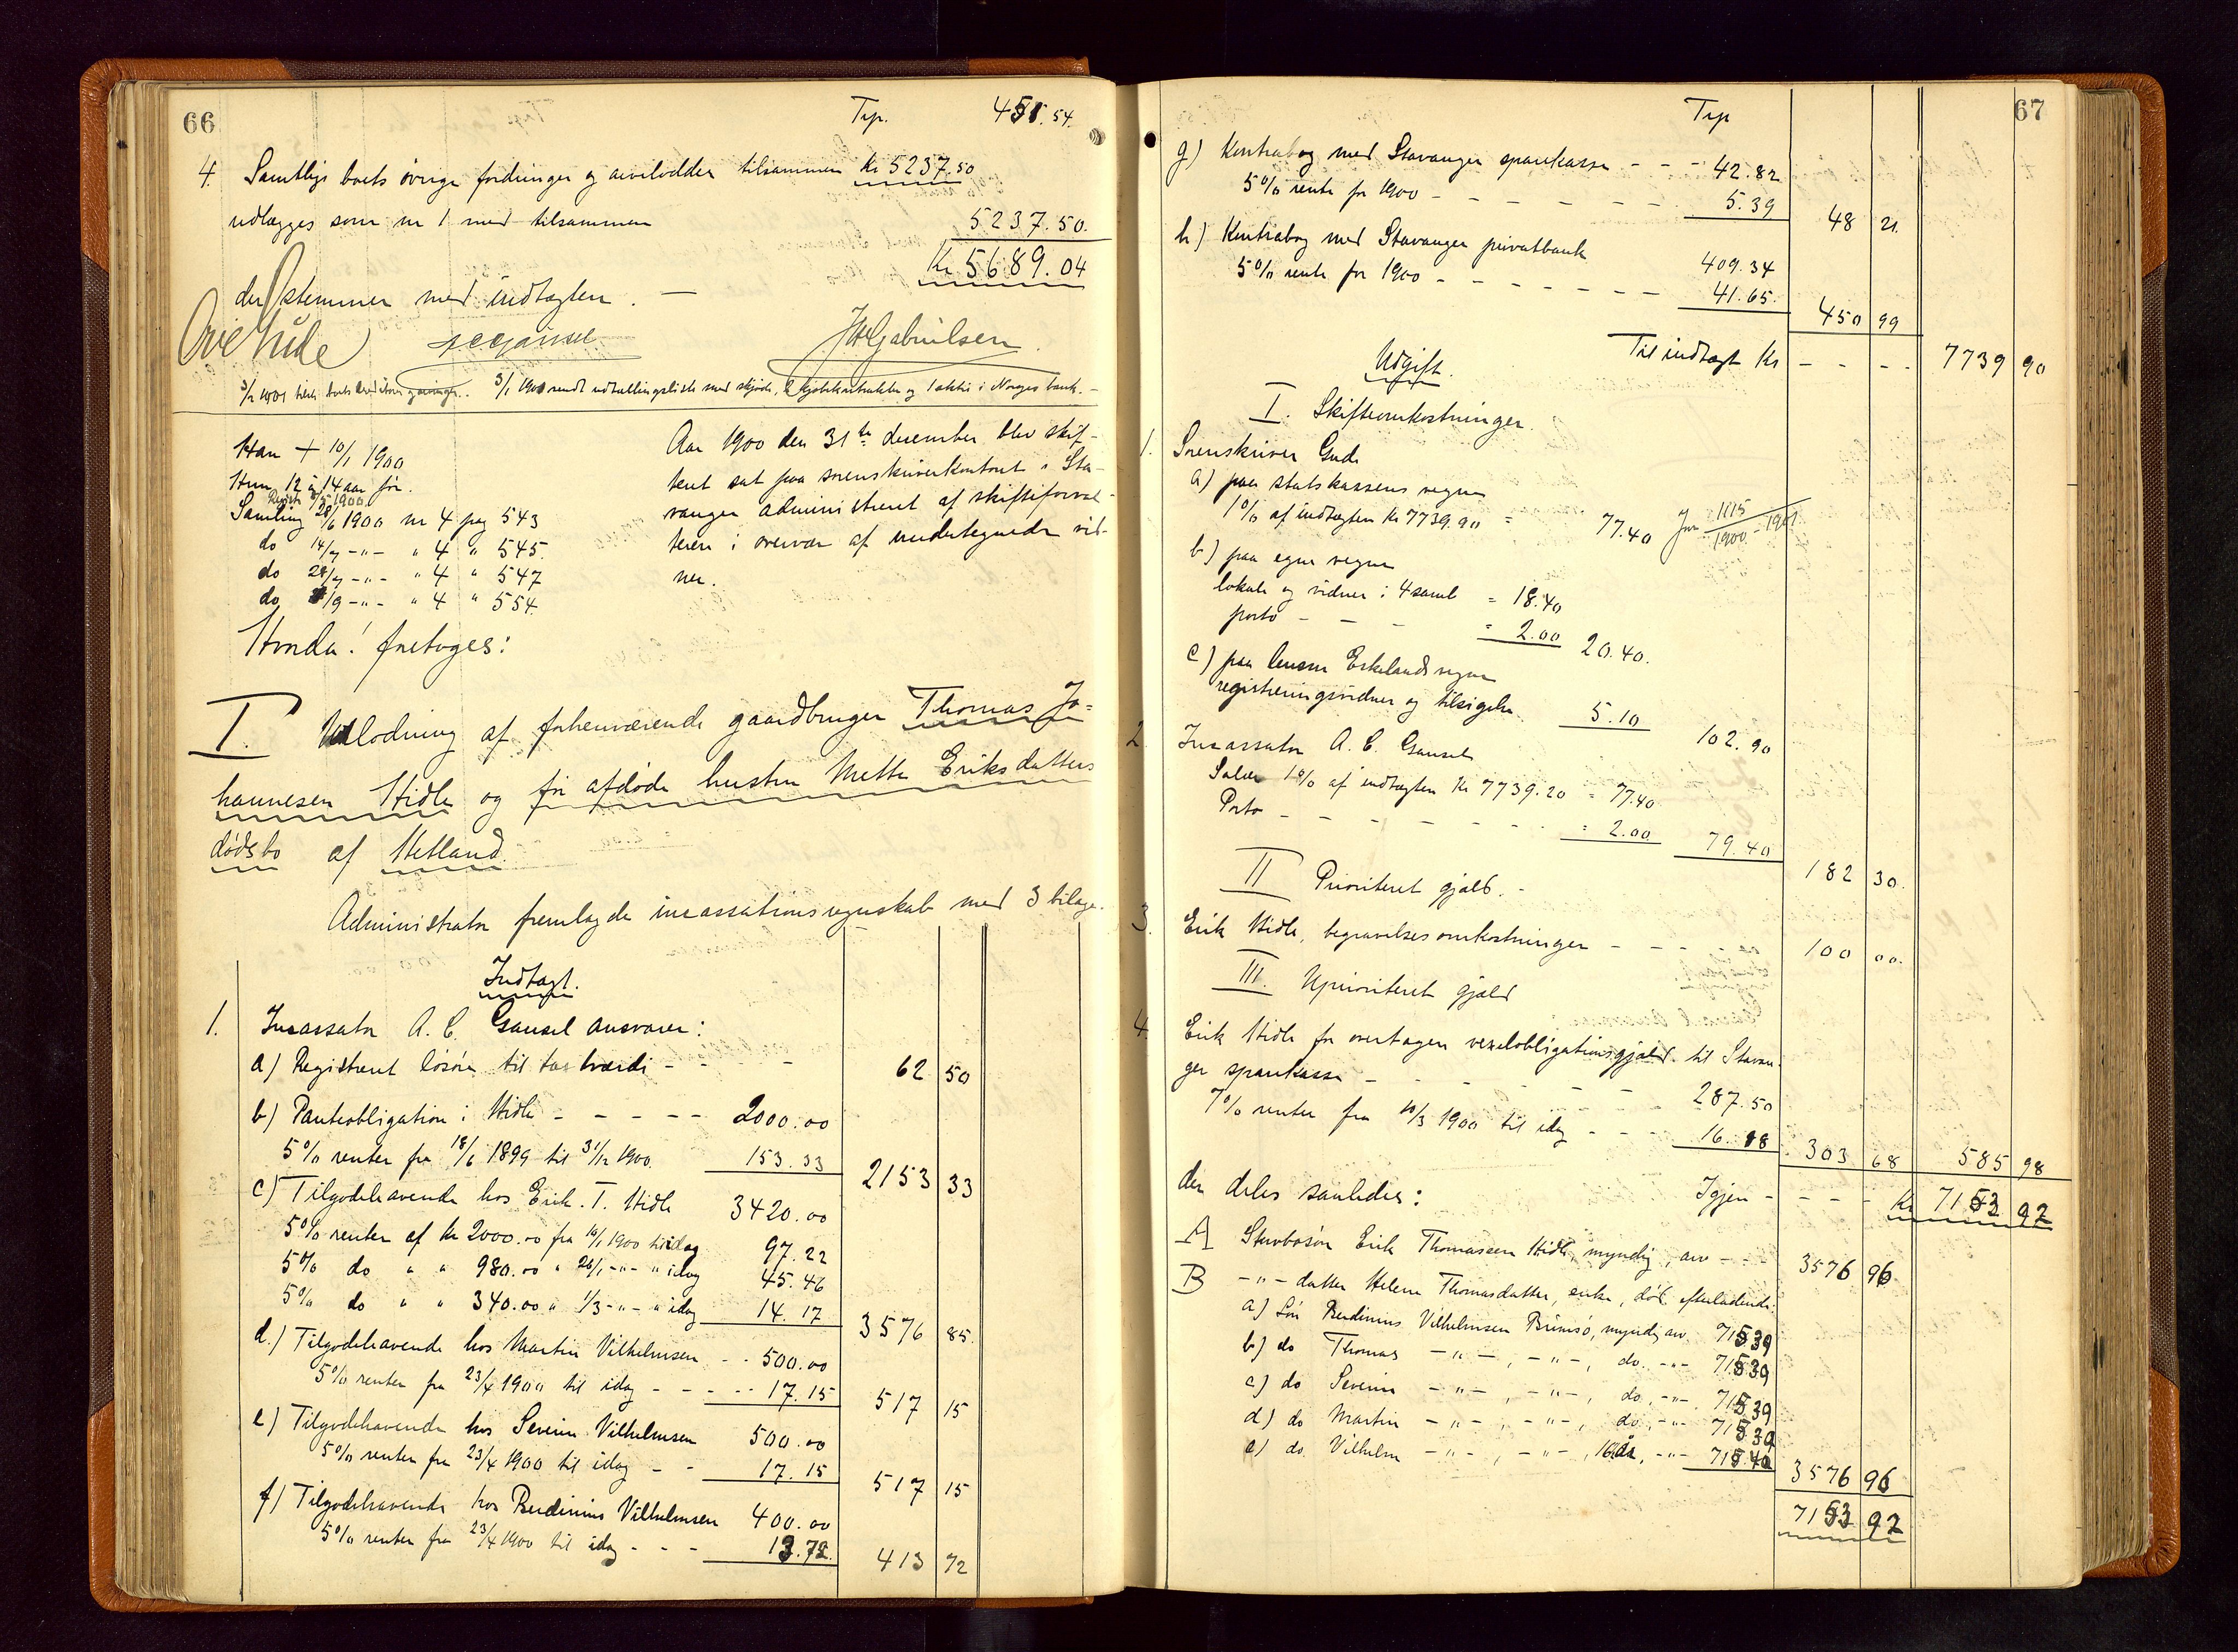 66
Trp. 451.54.
4. Samtlige boets övrige fordringer og arvelodder tilsammen Kr 5237.50
udlægges som nr 1 med tilsammen 5237.50.
Kr 5689.04
der stemmer med indtægten. —
Ove Gude JHGabrielsen.
3/1 1901 sendt udtællingsliste med skjøde, 2 kjøbekontrakter og 1 aktie i Norges bank. –
Han + 10/1 1900
Hun 12 à 14 aar før.
Registr 8/5 1900
Samling 28/6 1900 nr 4 pag 543
do 14/7 -"- " 4 " 545
do 28/7 -"- " 4 " 547
do /9 -"- " 4 " 554
Aar 1900 den 31te december blev skif-
teret sat paa sorenskriverkontoret i Sta-
vanger administreret af skifteforval-
teren i overvær af undertegnede vid-
ner.
Hvorda! foretoges:
I. Udlodning af forhenværende gaardbruger Thomas Jo=
hannesen Hidle og før afdøde hustru Mette Eriksdatters
dødsbo af Hetland.
Administrator fremlagde incassationsregnskab med 3 bilage.
Indtægt.
1. Incassator A. C. Gausel ansvarer:
a) Registreret løsøre til taxtværdi – – – 62 50
b) Panteobligation i Hidle – – – – – 2000.00
5% renter fra 18/6 1899 til 31/12 1900. 153.33 2153 33
c) Tilgodehavende hos Erik. T. Hidle 3420.00
5% renter af kr 2000.00 fra 10/1 1900 til idag 97.22
5% do " " 980.00 " 26/1 -"- " idag 45.46
5% do " " 340.00 " 1/3 -"- " idag 14.17 3576 85
d.) Tilgodehavende hos Martin Vilhelmsen – – 500.00
5% renter fra 23/4 1900 til idag – – – – – 17.15 517 15
e) Tilgodehavende hos Severin Vilhelmsen 500.00
5% renter fra 23/4 1900 til idag – – 17.15 517 15
f) Tilgodehavende hos Berdinius Vilhelmsen 400.00
5% renter fra 23/4 1900 til idag – – – 13.72. 413 72
67
Trp
g) Kontrabog med Stavanger sparekasse – – – 42.82
5% rente for 1900 – – – – – – – 5.39 48 21.
h) Kontrabog med Stavanger privatbank 409.34
5% rente for 1900 – – – – – – – 41.65. 450 99
Til indtægt Kr – – – – 7739 90
Udgift.
I. Skifteomkostninger.
1. Sorenskriver Gude
a) paa statskassens vegne
1% af indtægten Kr 7739.90 = 77.40 Jour 1115/1900 – 1901
b) paa egne vegne
lokale og vidner i 4 saml = 18.40
porto – – – = 2.00 20.40.
c) paa lensm Eskelands vegne
registreringsvidner og tilsigelse. 5.10 102.90
2. Incassator A. C. Gausel
Salær 1% af indtægten kr 7739.20 = 77.40
Porto – – – – – – – = 2.00 79.40 182 30.
II Prioriteret gjæld. –
3. Erik Hidle, begravelsesomkostninger – – – – 100 00.
III. Uprioriteret gjæld
4. Erik Hidle for overtagen vexelobligationsgjæld til Stavan-
ger sparekasse – – – – – – 287.50
7% renter fra 10/3 1900 til idag – – – 16.18 303 68 585 98
der deles saaledes: Igjen – – – – Kr 7153 92
A Stervbosøn Erik Thomassen Hidle, myndig, arv – – – 3576 96
B –"– datter Helene Thomasdatter, enke, død. efterladende:
a) Søn Berdinius Vilhelmsen Brimsø, myndig arv. 715 39
b) do Thomas –"–, –"–, do. –"– 715 39
c) do Severin –"–, –"–, do, –"–. 715 39
d) do Martin –"–, –"–, do, –"– 715 39
e) do. Vilhelm –"–, –"–, 16 aar, –"– 715.40 3576 96
7153 92